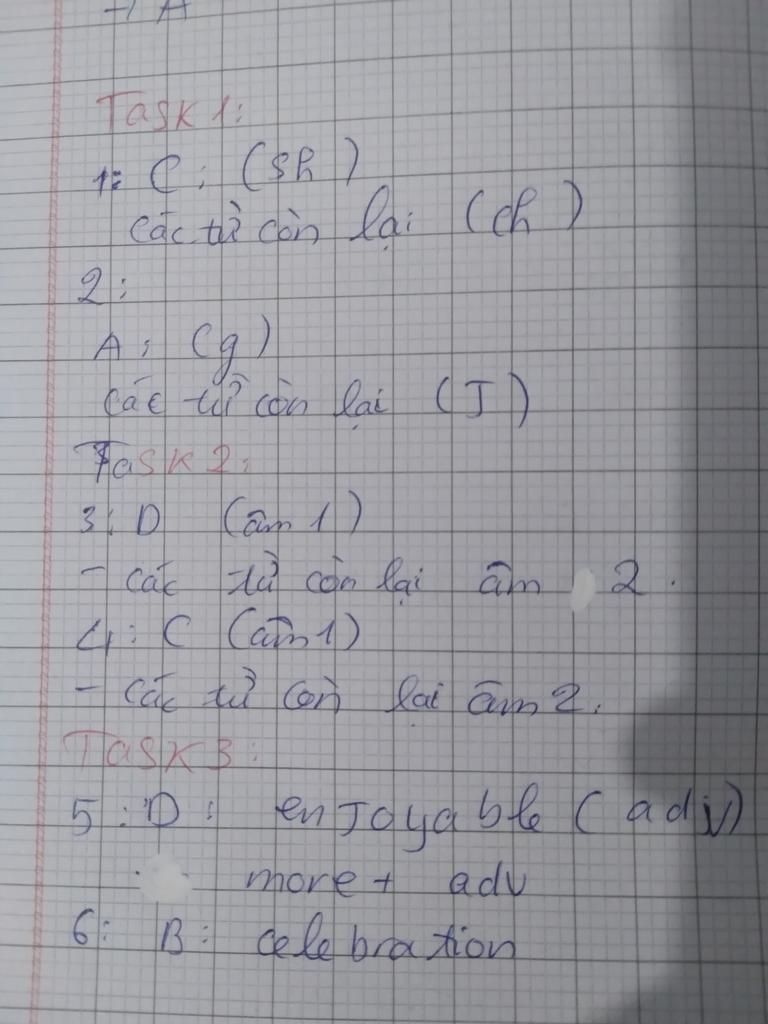 → A
Task 1:
1: C: (sh)
các từ còn lại (ch)
2:
A: (g)
các từ còn lại (J)
Task 2:
3: D (âm 1)
- các từ còn lại âm 2.
4: C (âm 1)
- các từ còn lại âm 2.
Task 3:
5: D: enjoyable (adv)
more + adv
6: B: celebration